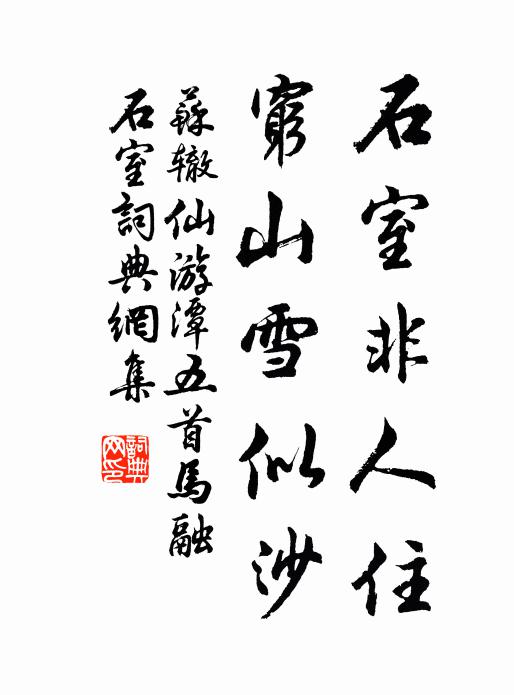 石室非人住
窮山雪似沙
蘇辙仙游潭五首馬融
石室詞典網集
詞典網印